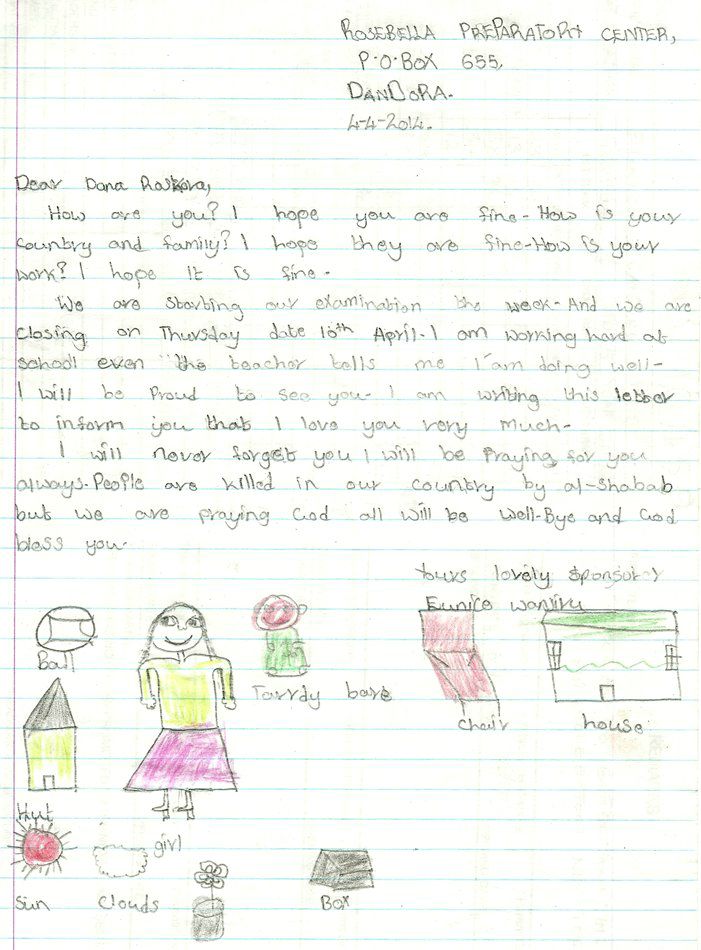 ROSEBELLA PREPARATORY CENTER,
P.O.BOX 655,
DANDORA.
4-4-2014.
Dear Dana
How are you? I hope you are fine-How is your
country and family? I hope they are fine-How is your
work? I hope it is fine-
We are starting our examination the week-And we are
closing on Thursday date 10th April-I am working hard at
school even the teacher tells me I am doing well-
I will be Proud to see you- I am writing this letter
to inform you that I love you very much-
I will never forget you I will be Praying for you
always-People are killed in our country by al-shabab
but we are praying God all will be well-Bye and God
bless you-
yours lovely
Eunice wanjiru
Ball
Tarrdy bare
chair
house
Hut
girl
Sun
Clouds
Box